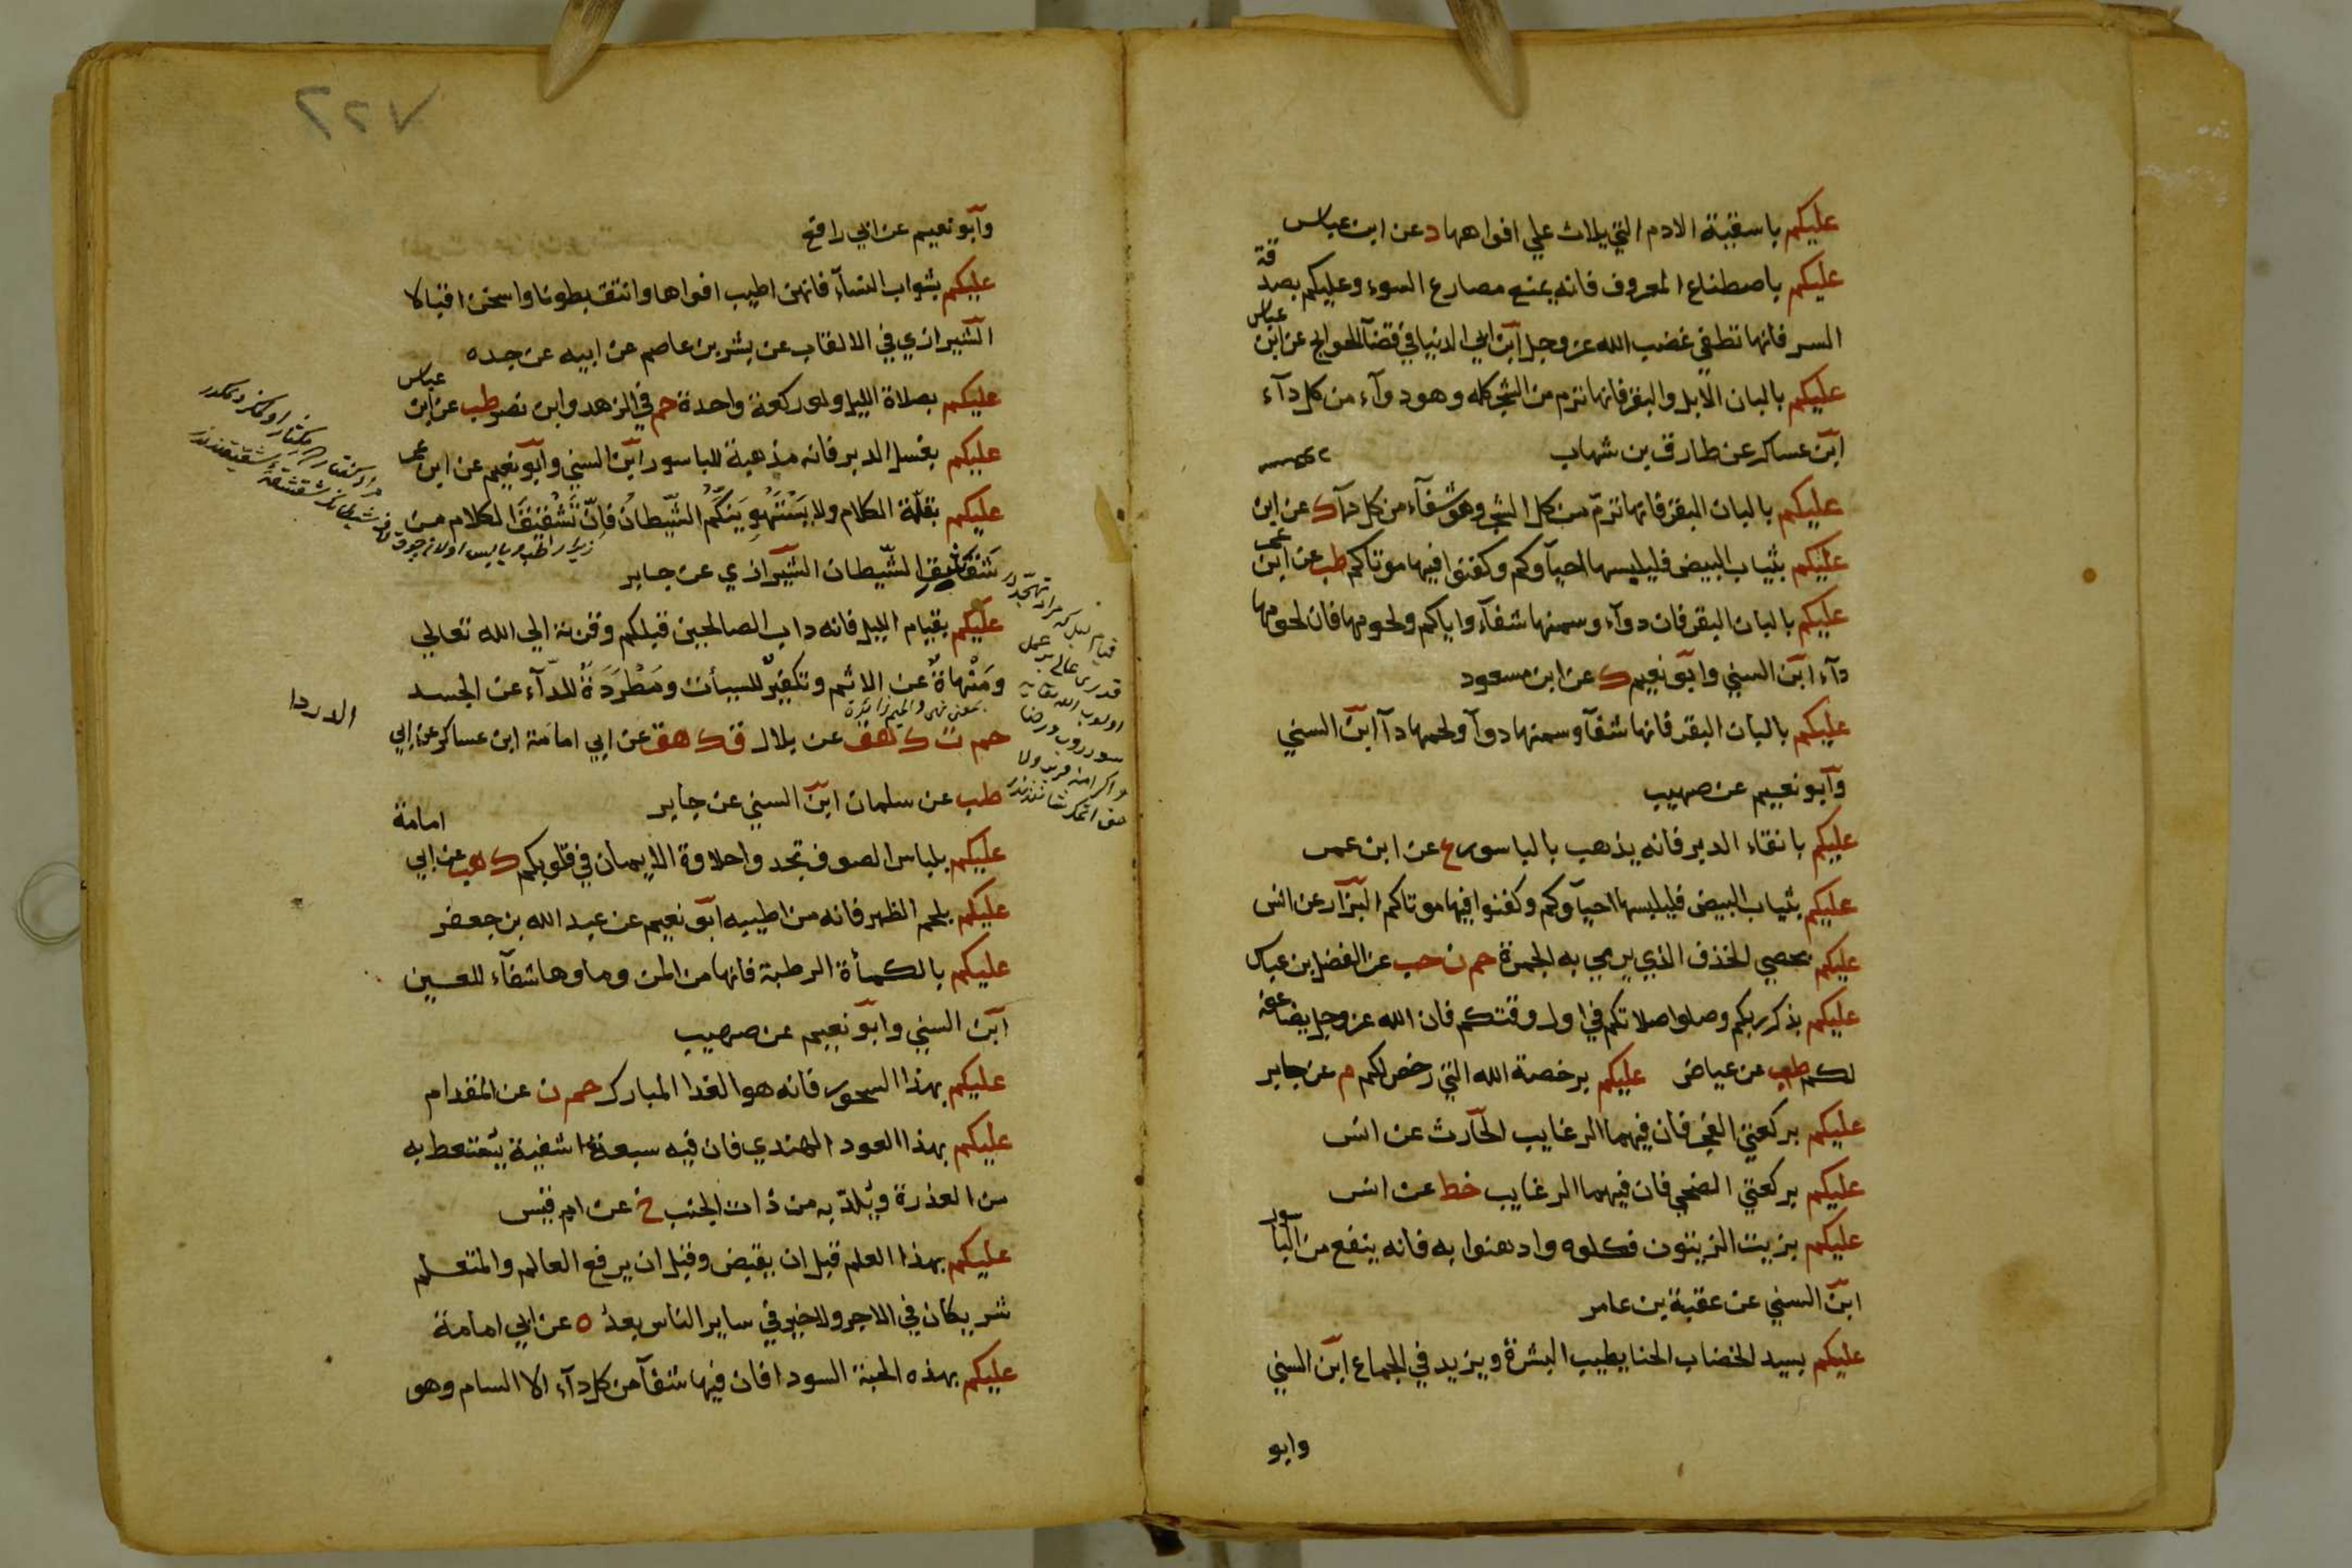 عليكم باسقية الادم التي يلاث علي افواهها د عن ابن عباس
عليكم باصطناع المعروف فانه يمنع مصارع السوء وعليكم بصدقة
السر فانها تطفي غضب الله عز وجل ابن ابي الدنيا في قضآ الحوايج عن ابن عباس
عليكم بالبان الابل والبقر فانها ترم من الشجر كله وهو دوآء من كل دآء
ابن عساكر عن طارق بن شهاب
عليكم بالبان البقر فانها ترم من كل الشجر وهو شفآء من كل دآ ك عن ابن
عليكم بثياب البيض فليلبسها احيآوكم وكفنوا فيها موتاكم طب عن ابن عمر
عليكم بالبان البقر فان دوآء وسمنها شفآء واياكم ولحومها فان لحومها
دآء ابن السني وابو نعيم ك عن ابن مسعود
عليكم بالبان البقر فانها شفآ وسمنها دوآ ولحمها دآ ابن السني
وابو نعيم عن صهيب
عليكم بانقاء الدبر فانه يذهب بالباسور ع عن ابن عمر
عليكم بثياب البيض فليلبسها احيآوكم وكفنوا فيها موتاكم البزار عن انس
عليكم بحصي الخذف الذي يرمي به الجمرة حم ن حب عن الفضل بن عباس
عليكم بذكر ربكم وصلوا صلاتكم في اول وقتكم فان الله عز وجل يضاعف
لكم طب عن عياض عليكم برخصة الله التي رخص لكم م عن جابر
عليكم بركعتي الفجر فان فيهما الرغايب الحارث عن انس
عليكم بركعتي الضحي فان فيهما الرغايب خط عن انس
عليكم بزيت الزيتون فكلوه وادهنوا به فانه ينفع من الباسور
ابن السني عن عقبة بن عامر
عليكم بسيد الخضاب الحنا يطيب البشرة ويزيد في الجماع ابن السني
وابو
٢٢٧
وابو نعيم عن ابي رافع
عليكم بشواب النسآء فانهن اطيب افواها وانتق بطونا واسخن اقبالا
الشيرازي في الالقاب عن بشر بن عاصم عن ابيه عن جده
عليكم بصلاة الليل ولو ركعة واحدة حم في الزهد وابن نصر طب عن ابن عباس
عليكم بغسل الدبر فانه مذهبة للباسور ابن السني وابو نعيم عن ابن عمر
عليكم بقلة الكلام ولا يستهوينكم الشيطان فان تشقيق الكلام من
شقاشق الشيطان الشيرازي عن جابر
عليكم بقيام الليل فانه داب الصالحين قبلكم وقربة الي الله تعالي
ومنهاة عن الاثم وتكفير للسيأت ومطردة للدآء عن الجسد
حم ت ك هق عن بلال ت ك هق عن ابي امامة ابن عساكر عن ابي
الدردا
طب عن سلمان ابن السني عن جابر
عليكم بلباس الصوف تجدوا حلاوة الايمان في قلوبكم ك هب عن ابي امامة
عليكم بلحم الظهر فانه من اطيبه ابو نعيم عن عبد الله بن جعفر
عليكم بالكمأة الرطبة فانها من المن وماوها شفآء للعين
ابن السني وابو نعيم عن صهيب
عليكم بهذا السحور فانه هو الغدا المبارك حم ن عن المقدام
عليكم بهذا العود الهندي فان فيه سبعة اشفية يستعط به
من العذرة ويلد به من ذات الجنب خ عن ام قيس
عليكم بهذا العلم قبل ان يقبض وقبل ان يرفع العالم والمتعلم
شريكان في الاجر ولا خير في ساير الناس بعد ه عن ابي امامة
عليكم بهذه الحبة السودا فان فيها شفآ من كل دآء الا السام وهو